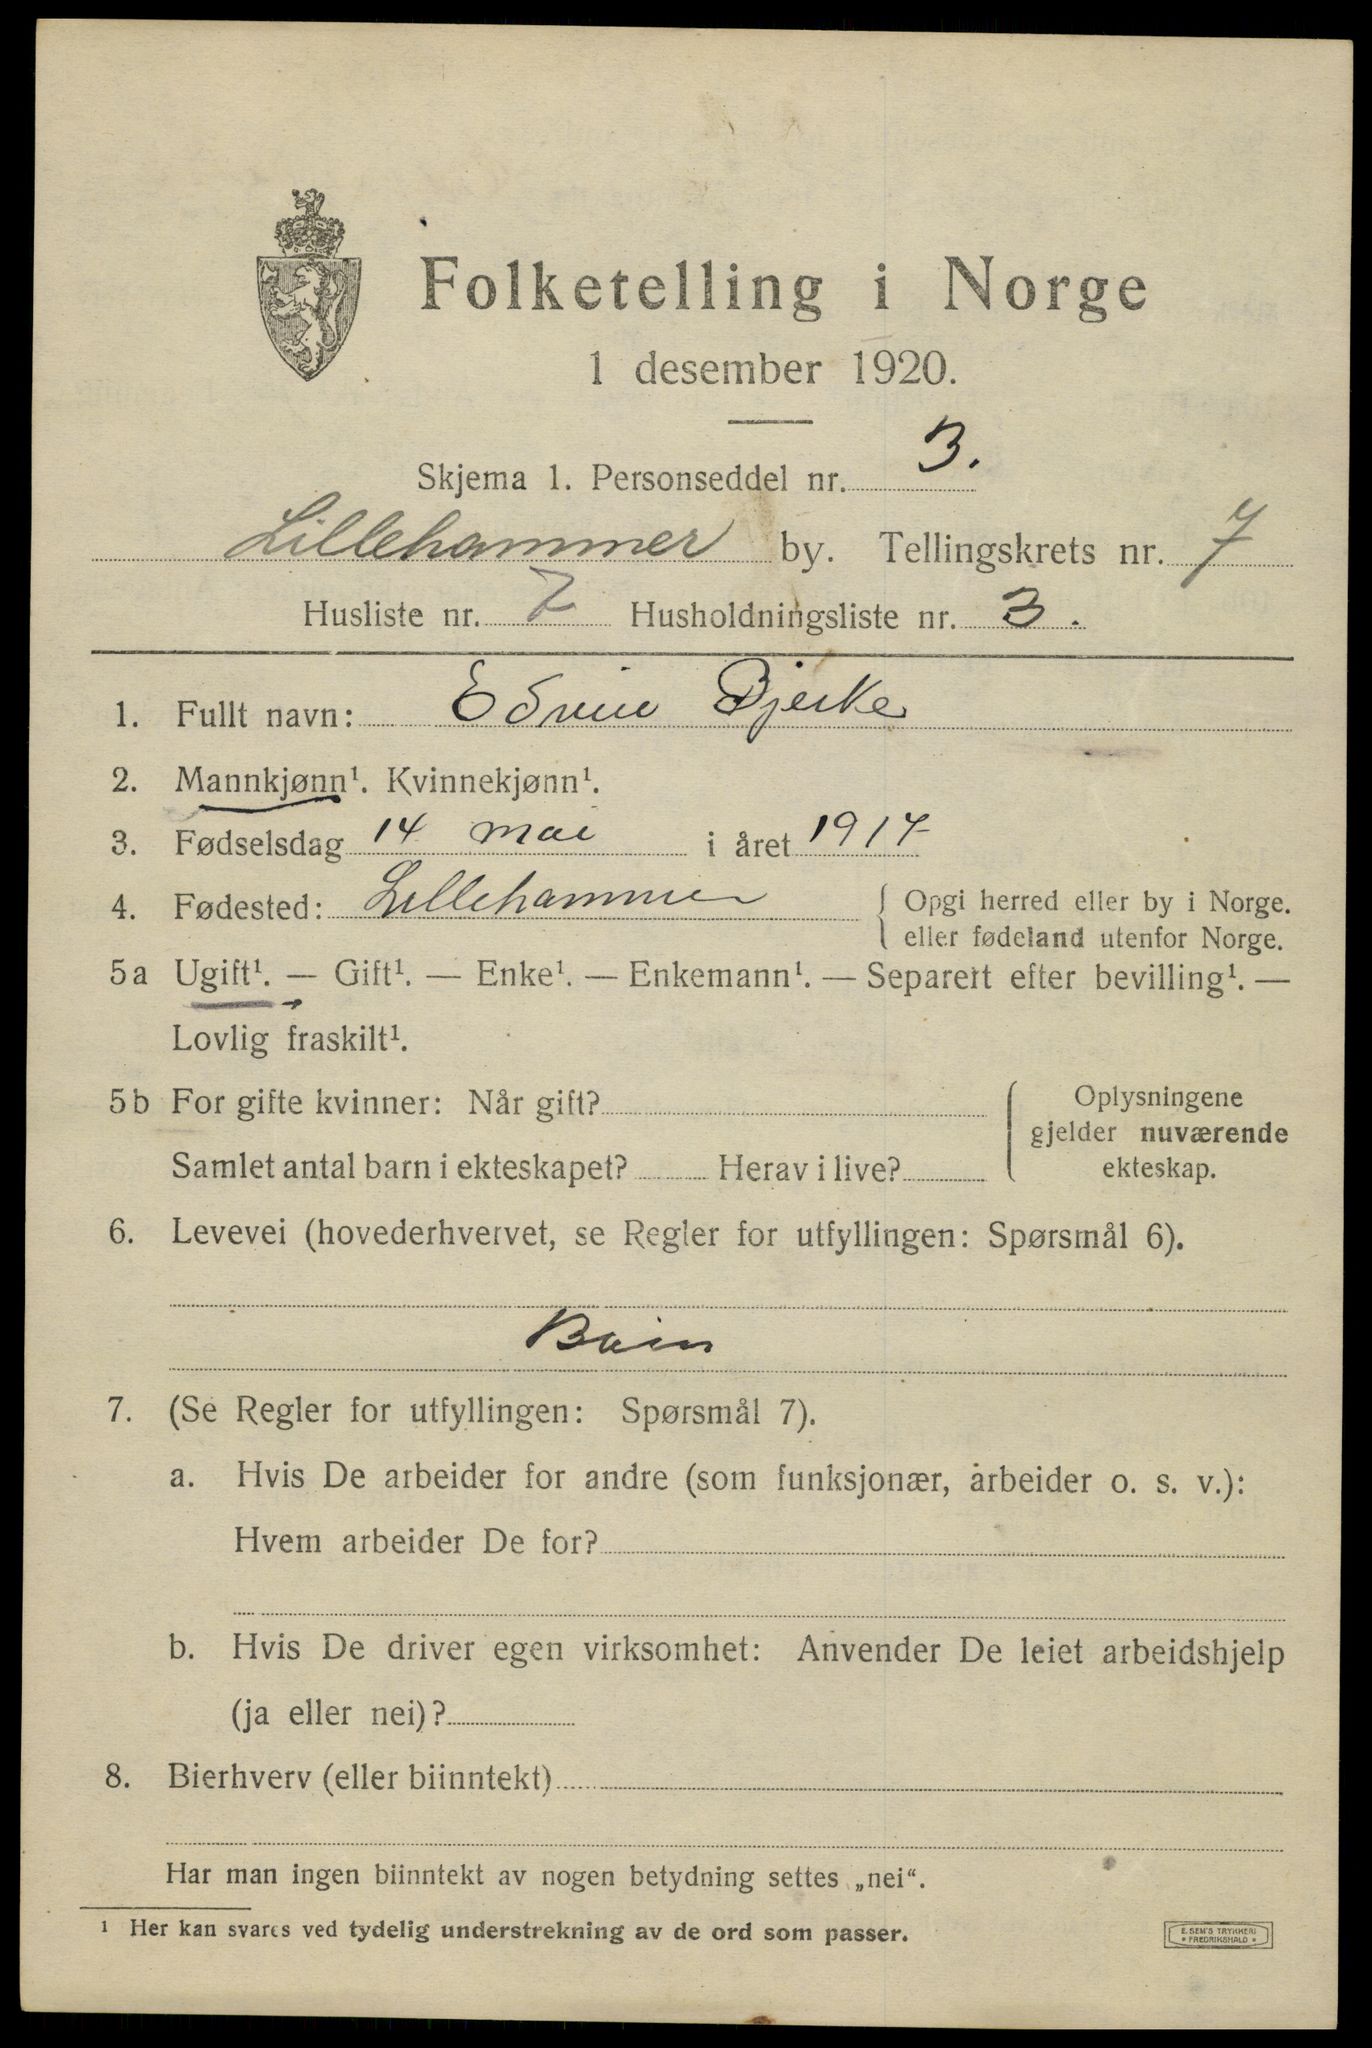 Folketelling i Norge
1 desember 1920.
Skjema 1. Personseddel nr. 3.
Lillehammer by. Tellingskrets nr. 7
Husliste nr. 7 Husholdningsliste nr. 3.
1. Fullt navn: Edvin Bjerke
2. Mannkjønn¹. Kvinnekjønn¹.
3. Fødselsdag 14 mai i året 1917
4. Fødested: Lillehammer { Opgi herred eller by i Norge.
eller fødeland utenfor Norge.
5a Ugift¹. — Gift¹. — Enke¹. — Enkemann¹. — Separert efter bevilling¹. —
Lovlig fraskilt¹.
5b For gifte kvinner: Når gift?
Samlet antal barn i ekteskapet? Herav i live?
Oplysningene
gjelder nuværende
ekteskap.
6. Levevei (hovederhvervet, se Regler for utfyllingen: Spørsmål 6).
Barn
7. (Se Regler for utfyllingen: Spørsmål 7).
a. Hvis De arbeider for andre (som funksjonær, arbeider o. s. v.):
Hvem arbeider De for?
b. Hvis De driver egen virksomhet: Anvender De leiet arbeidshjelp
(ja eller nei)?
8. Bierhverv (eller biinntekt)
Har man ingen biinntekt av nogen betydning settes „nei“.
¹ Her kan svares ved tydelig understrekning av de ord som passer.
E. SEM'S TRYKKERI
* FREDRIKSHALD *